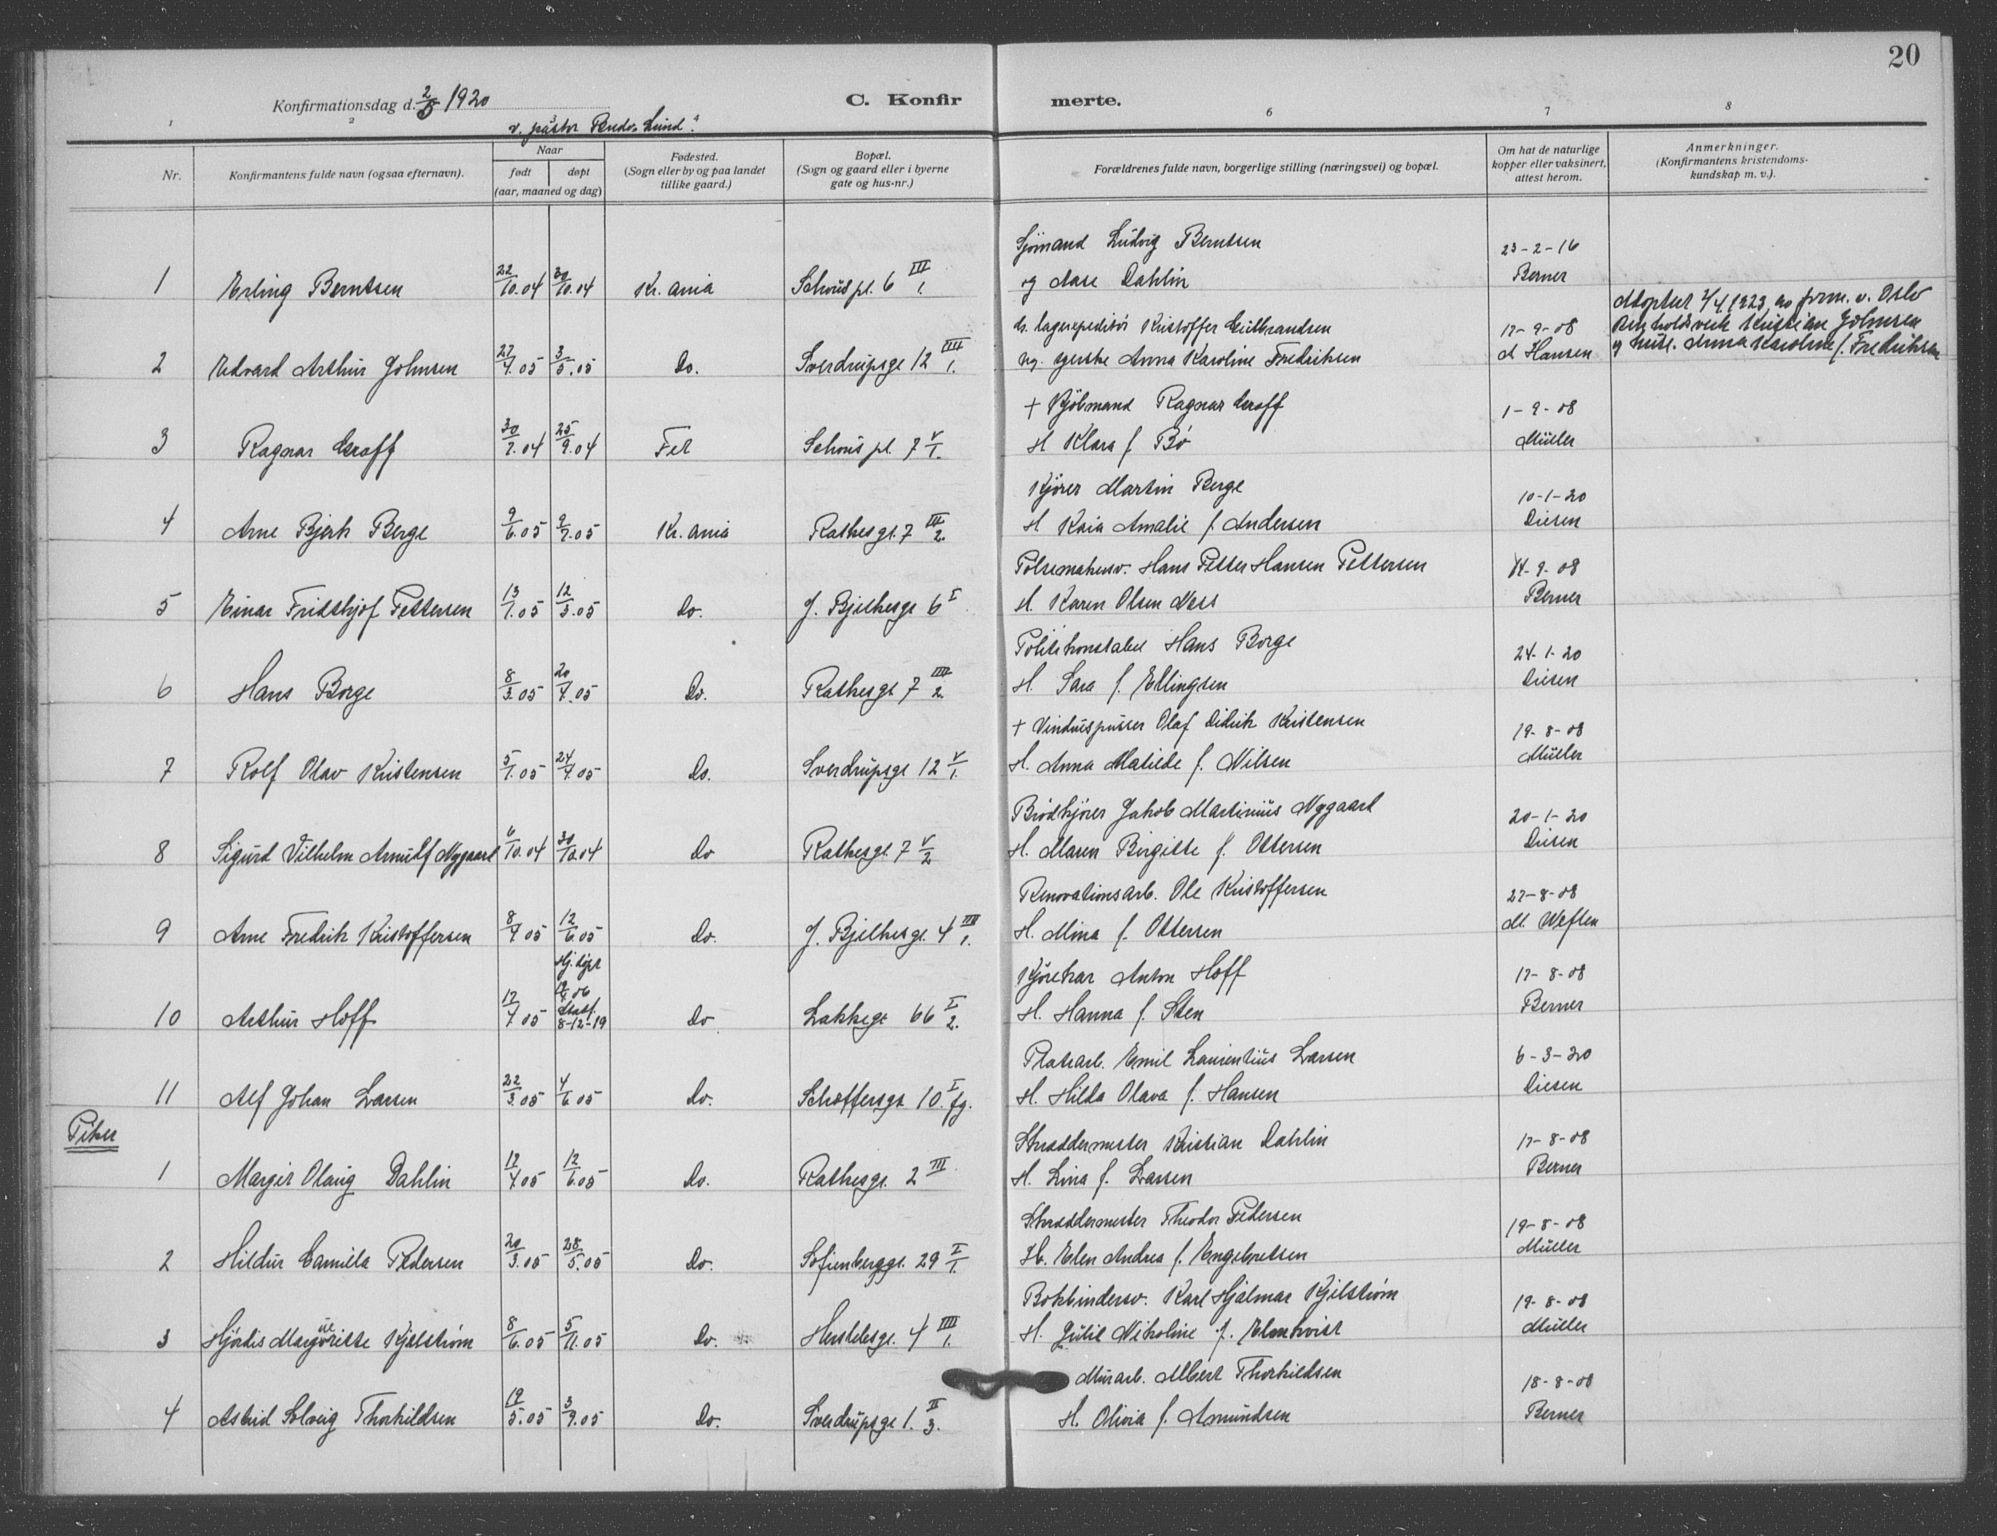 20
Konfirmationsdag d. 2/5 1920
C. Konfirmerte.
v. pastor Lund
1 2 3 4 6 7 8
Nr.
Konfirmantens fulde navn (ogsaa efternavn).
Naar
født
døpt
(aar, maaned og dag)
Fødested.
(Sogn eller by og paa landet
tillike gaard.)
Bopæl.
(Sogn og gaard eller i byerne
gate og hus-nr.)
Forældrenes fulde navn, borgerlige stilling (næringsvei) og bopæl.
Om hat de naturlige
kopper eller vaksinert,
attest herom.
Anmerkninger.
(Konfirmantens kristendoms-
kundskap m. v.).
Sjømand Ludvig Berntsen 23-2-16
1 Erling Berntsen 22/10.04 30/10.04 Kr.ania Schous pl. 6 III/1. og Aase Dahlin Berner
Adoptert 1923 av v. Oslo
Kristoffer Gulbrandsen 17-9-08 Kristian Johnsen
2 Edvard Arthur Johnsen 27/4.05 3/5.05 Do. Sverdrupsgt 12 IIII/1. Anna Karoline Fredriksen A Hansen og Anna Karoline f. Fredriksen
+ Kjøbmand Ragnar Graff 1-9-08
3 Ragnar Graff 30/7.04 25/9.04 Fet Schous pl. 7 V/1. H. Klara f. Bø Müller
Kjører Martin Berge 10-1-20
4 Arne Bjerk Berge 9/6.05 9/7.05 Kr.ania Rathesgt. 7 III/2. H. Kaia Amalie f. Andersen Diesen
Pølsemakersv. Hans Petter Hansen Pettersen 14-9-08
5 Einar Fridthjof Pettersen 13/1.05 12/3.05 Do. J. Bjelkesgt 6 I H. Karen Olsen Næss Berner
Politikonstabel Hans Borge 24-1-20
6 Hans Borge 8/3.05 20/4.05 Do. Rathesgt 7 III/2. H. Sara f. Ellingsen Diesen
+ Vinduspusser Olaf Didrik Kristensen 19-8-08
7 Rolf Olav Kristensen 5/1.05 24/4.05 Do. Sverdrupsgt 12 V/1. H. Anna Matilde f. Nilsen Müller
Brødkjører Jakob Martinius Nygaard 20-1-20
8 Sigurd Vilhelm Arnulf Nygaard 6/10.04 30/10.04 Do Rathesgt 7 V/2 H. Maren Birgitte f. Ottersen Diesen
Renovationsarb. Ole Kristoffersen 27-8-08
9 Arne Fredrik Kristoffersen 8/4.05 12/6.05 Do. J. Bjelkesgt. 4 III/1. H. Mina f. Ottersen
Hj.døpt
Kjørekar Anton Hoff 17-8-08
10 Arthur Hoff 12/4.05 Stadf. 8-12-19 Do Lakkegt 66 I/2. H. Hanna f. Sten Berner
Platsarb. Emil Laurentius Larsen 6-3-20
11 Alf Johan Larsen 22/3.05 4/6.05 Do. Schæffersgt 10. I/fg. H. Hilda Olava f. Hansen Diesen
Piker
Skræddermester Kristian Dahlin 17-8-08
1 Margit Olaug Dahlin 12/4.05 12/6.05 Do. Rathesgt. 2 III H. Lina f. Larsen Berner
Skræddermester Theodor Pedersen 19-8-08
2 Hildur Camilla Pedersen 20/3.05 28/5.05 Do. Sofienberggt. 29 I/1. H. Elen Andrea f. Engebretsen Müller
Bokbindersv. Karl Hjalmar Kjelstrøm 19-8-08
3 Hjørdis Margueritte Kjelstrøm 8/6.05 5/11.05 Do. Herslebsgt. 4 IIII/1. H. Julie Nikoline f. Elmkvist Müller
Murarb. Albert Thorkildsen 18-8-08
4 Astrid Solveig Thorkildsen 19/5.05 3/9.05 Do. Sverdrupsgt 1. II/3. H. Olivia f. Amundsen Berner